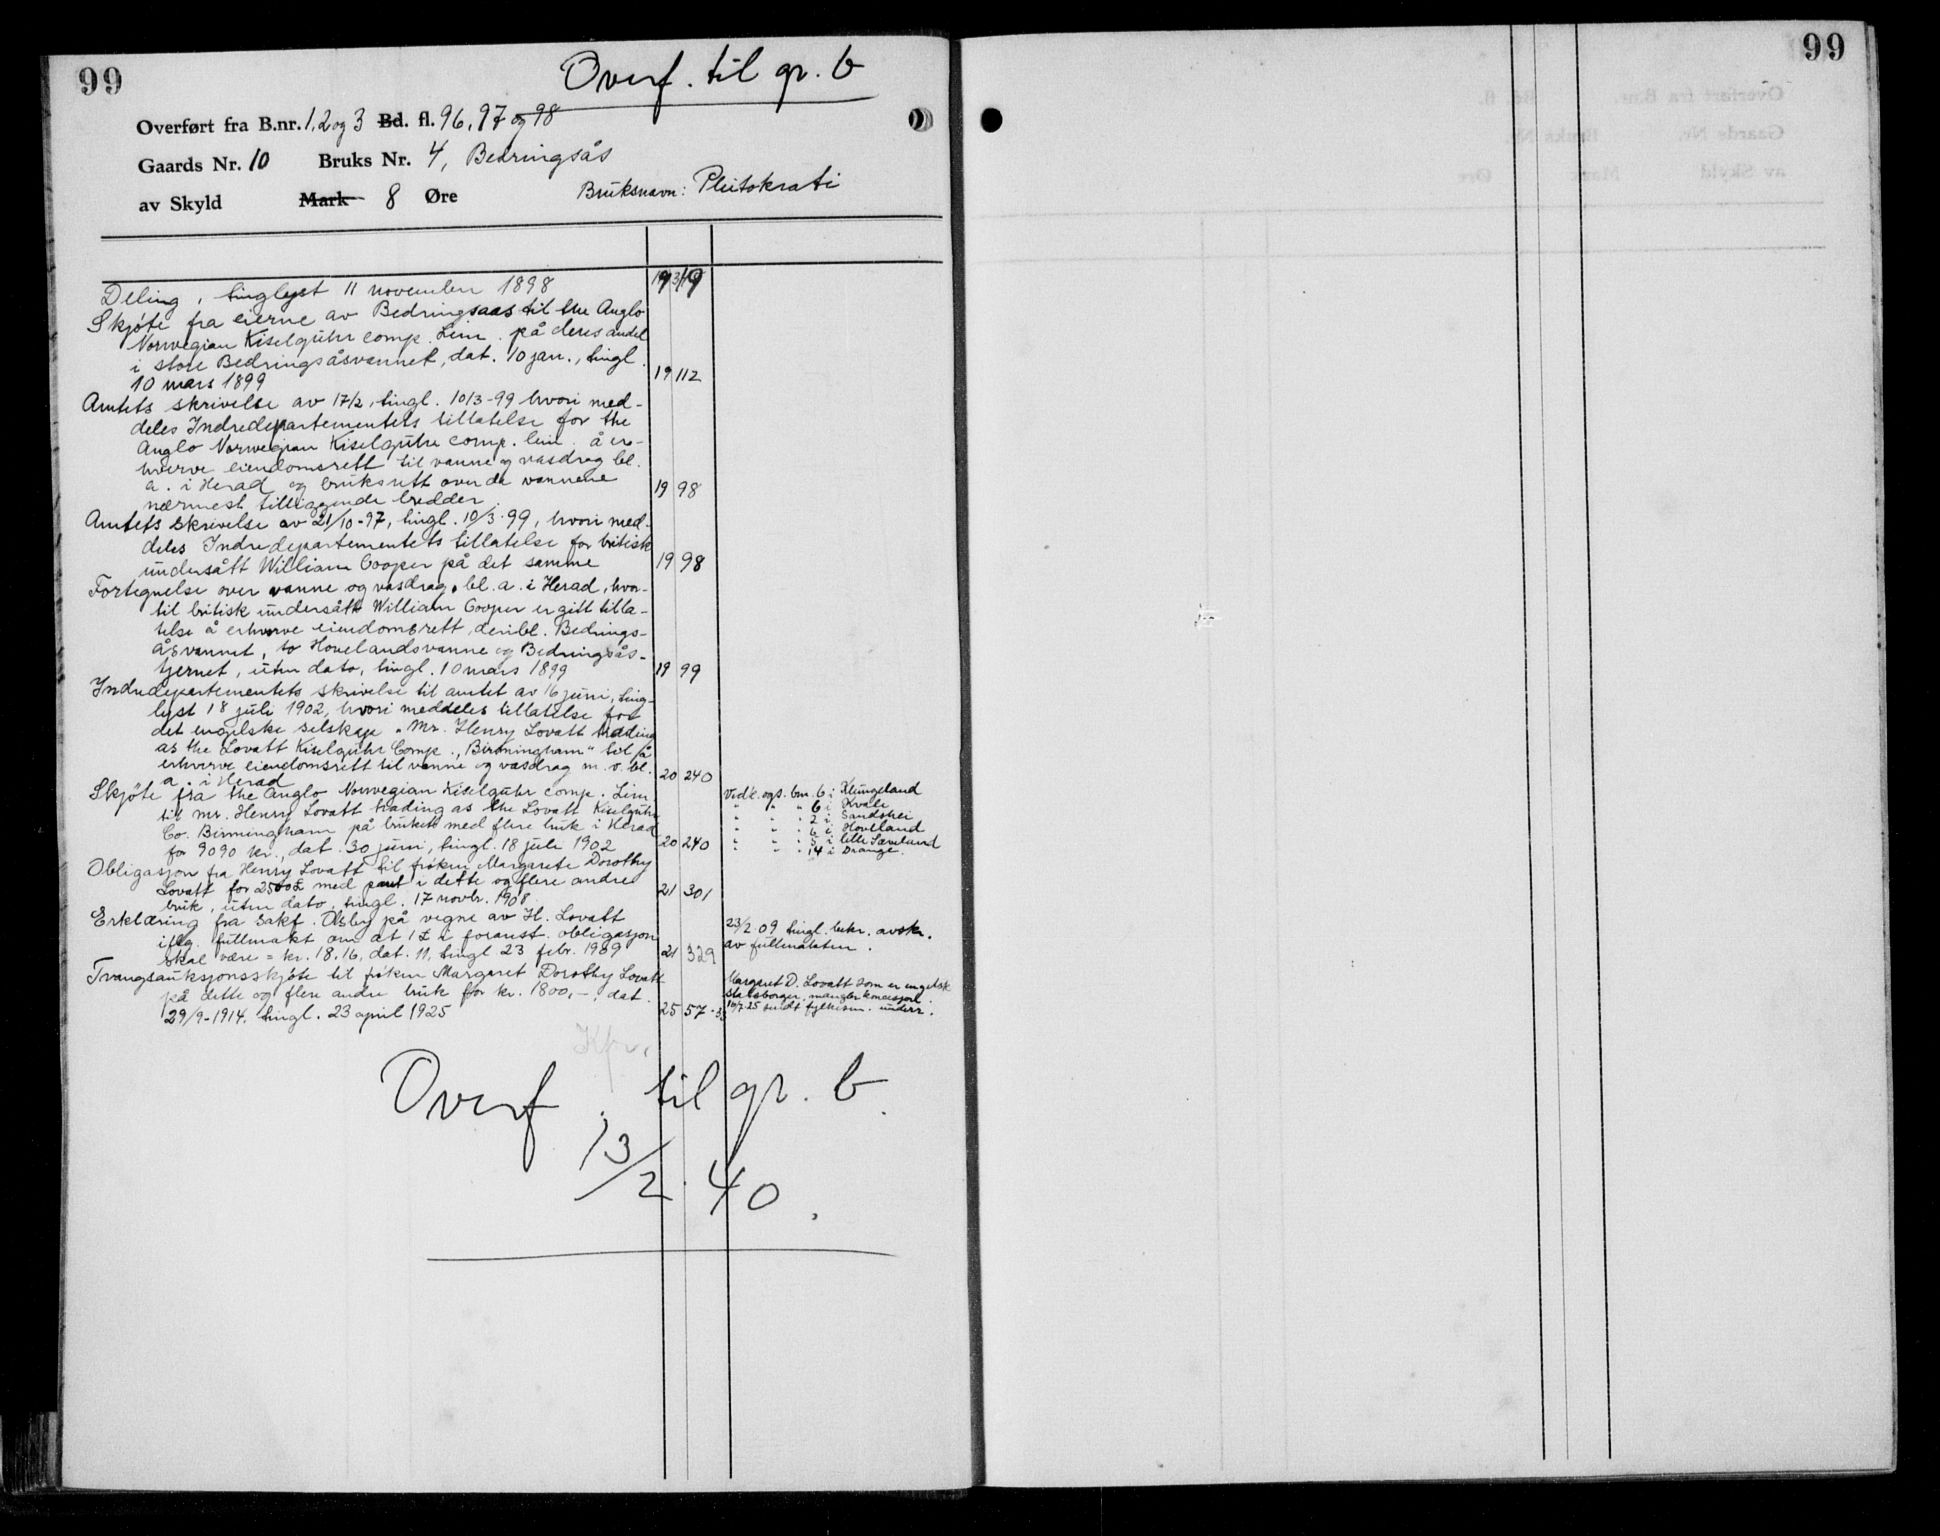 99
Overf. til gr. b
Overført fra B.nr. 1, 2 og 3 Bd. fl. 96, 97 og 98
Gaards Nr. 10 Bruks Nr. 4, Bedringsås
av Skyld Mark 8 Øre Bruksnavn: Plutokrati
Deling, tinglyst 11 november 1898 19
Skjøte fra eierne av Bedringsaas til the Anglo
Norwegian Kiselguhr comp. Lim. på deres andel
i store Bedringsåsvannet, dat. 10 jan., tingl.
10 mars 1899 19 112
Amtets skrivelse av 17/2, tingl. 10/3-99 hvori med-
deles Indredepartementets tillatelse for the
Anglo Norwegian Kiselguhr comp. lim. å er-
hverve eiendomsrett til vanne og vasdrag bl.
a. i Herad og bruksrett over de vannene
nærmest tilliggende bredder. 19 98
Amtets skrivelse av 21/10-97, tingl. 10/3-99, hvori med-
deles Indredepartementets tillatelse for britisk
undersått William Cooper på det samme 19 98
Fortegnelse over vanne og vasdrag bl. a. i Herad, hvor-
til britisk undersått William Cooper er gitt tilla-
telse å erhverve eiendomsrett, deribl. Bedrings-
åsvannet, to Hovelandsvanne og Bedringsås-
tjernet, uten dato, tingl. 10 mars 1899 19 99
Indredepartementets skrivelse til amtet av 16 juni, ting-
lyst 18 juli 1902, hvori meddeles tillatelse for
det engelske selskap "Mr. Henry Lovatt trading
as the Lovatt Kiselguhr Comp., Birmingham" til å
erhverve eiendomsrett til vanne og vasdrag m. v. bl.
a. i Herad 20 240
Skjøte fra the Anglo Norwegian Kiselguhr comp. Lim.
til mr. Henry Lovatt trading as the Lovatt Kiselguhr
Co. Birmingham på bruket med flere bruk i Herad
for 9090 kr., dat. 30 juni, tingl. 18 juli 1902 20 240
Vedk. ogs. bnr. 6 i Klungeland
" " " 6 i Kvale
" " " 2 i Sandshei
" " " 6 i Hoveland
" " " 5 i lille Sæveland
" " " 14 i Drange.
Obligasjon fra Henry Lovatt til frøken Margarete Dorothy
Lovatt for 2500£ med pant i dette og flere andre
bruk, uten dato, tingl. 17 novbr. 1908 21 301
Erklæring fra sakf. Olsby på vegne av H. Lovatt
iflg. fullmakt om at 1£ i foranst. obligasjon
skal være = kr. 18.16, dat. 11, tingl 23 febr. 1909 21 329
23/2-09 tingl. bekr. avskr.
av fullmakten.
Tvangsauksjonsskjøte til frøken Margaret Dorothy Lovatt
på dette og flere andre bruk for kr. 1800,-, dat.
29/9-1914. tingl. 23 april 1925 25 57
Margaret D. Lovatt som er engelsk
statsborger, mangler konsesjon.
10/7-25 sendt fylkesm. underr.
Overf. til gr. b.
13/2. 40.
99